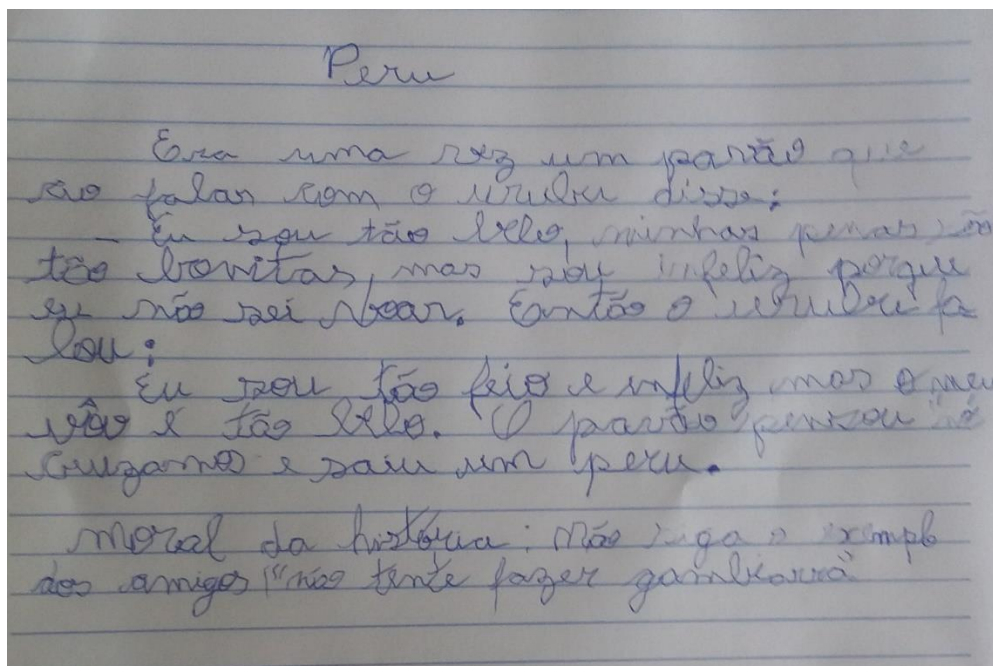 Peru
Era uma vez um pavão que
vão falar com o urubu disse:
- Eu sou tão belo, minhas penas são
tão bonitas, mas sou infeliz porque
eu não sei voar. Então o urubu fa
lou:
Eu sou tão feio e infeliz mas o meu
vôo é tão belo. O pavão pensou nós
cruzamos e saiu um peru.
Moral da história: Não siga o exemplo
dos amigos "não tente fazer gambiarra"